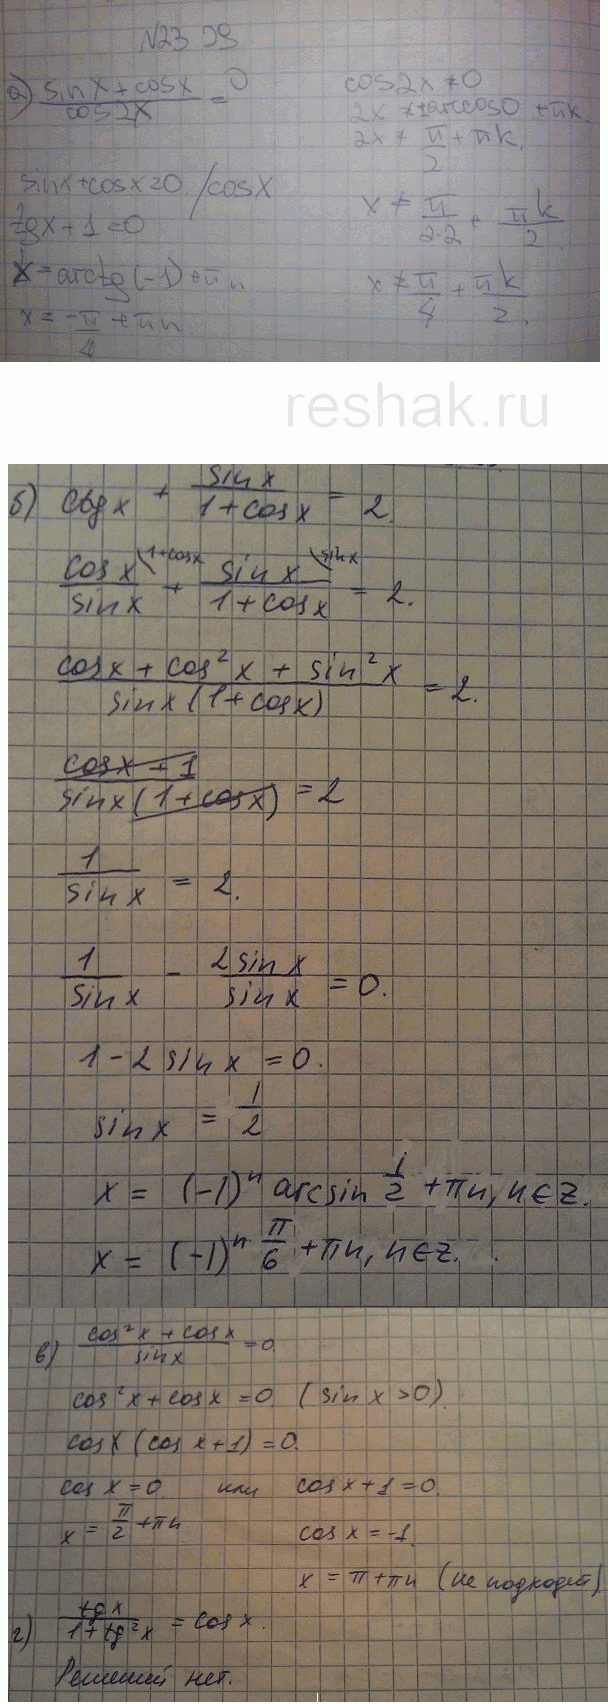 N23 29
а) (sinx + cosx)/(cos2x) = 0
cos2x ≠ 0
2x ≠ ±arccos0 + πk.
2x ≠ π/2 + πk.
sinx + cosx = 0. /cosx
x ≠ π/(2·2) + πk/2.
tgx + 1 = 0
x = arctg(-1) + πn
x ≠ π/4 + πk/2.
x = -π/4 + πn.
reshak.ru
б) ctgx + sinx/(1+cosx) = 2.
cosx/sinx \1+cosx + sinx/(1+cosx) \sinx = 2.
(cosx + cos²x + sin²x)/(sinx(1+cosx)) = 2.
(cosx + 1)/(sinx(1+cosx)) = 2
1/sinx = 2.
1/sinx - 2sinx/sinx = 0.
1 - 2sinx = 0.
sinx = 1/2
x = (-1)ⁿ arcsin 1/2 + πn, n∈z.
x = (-1)ⁿ π/6 + πn, n∈z.
в) (cos²x + cosx)/sinx = 0
cos²x + cosx = 0 (sinx > 0).
cosx (cosx + 1) = 0.
cosx = 0 или cosx + 1 = 0.
x = π/2 + πn
cosx = -1.
x = π + πn (не подходит)
г) tgx/(1+tg²x) = cosx.
Решений нет.